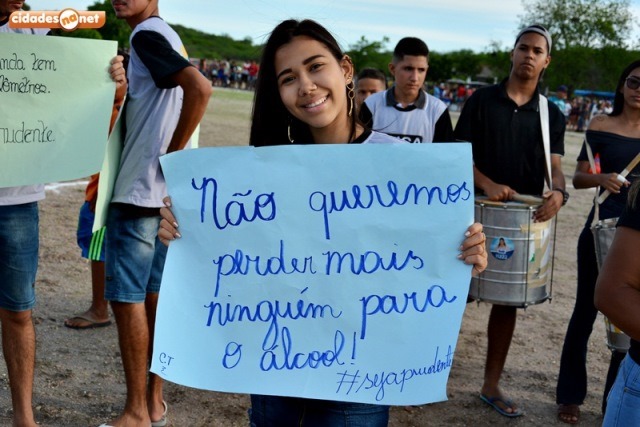 cidadesnanet
anda tem
lômetros.
rudente.
Não queremos
perder mais
ninguém para
o álcool!
#sejaprudente
CT
2